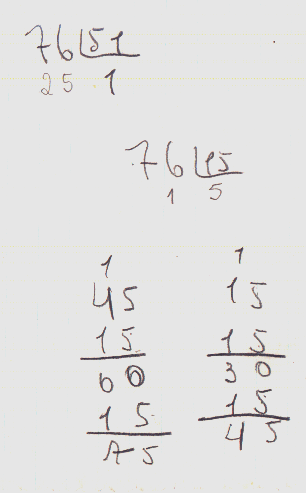 76 51
25 1
76 15
1 5
1
45
15
60
15
75
1
15
15
30
15
45